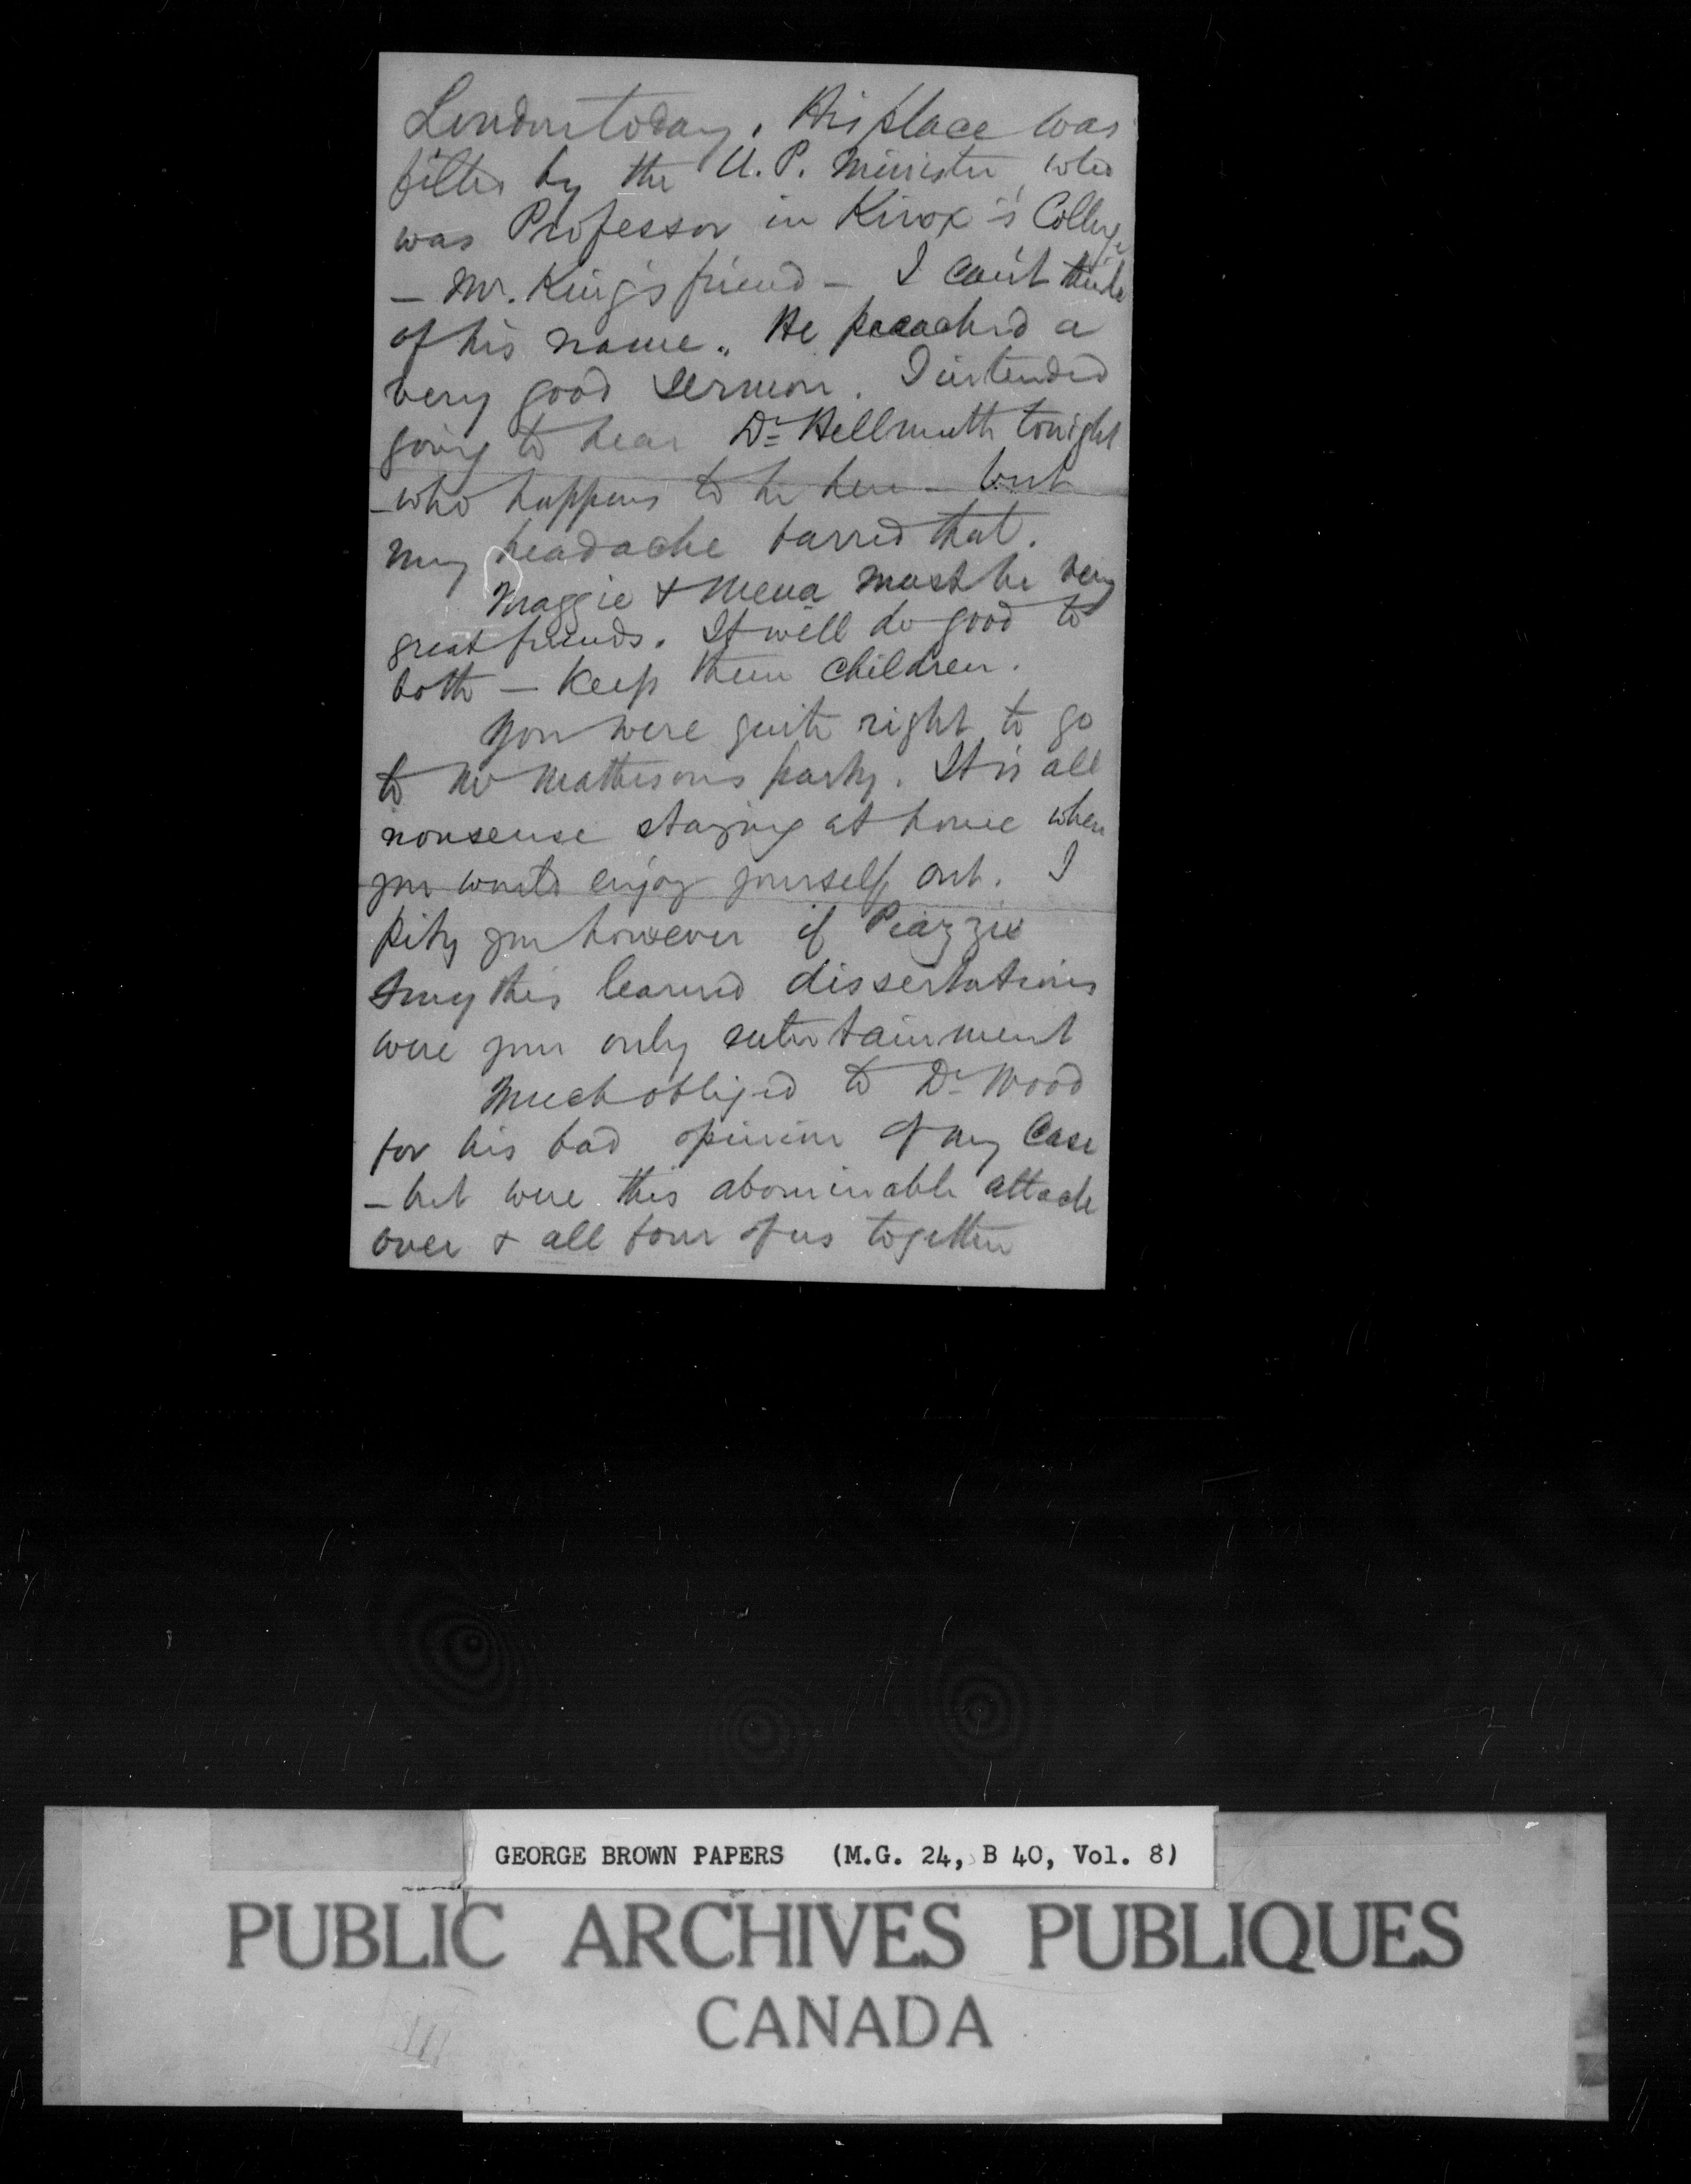 London today. His place was
filled by the U.P. Minister, who
was Professor in Knox's College
– Mr. King's friend – I can't think
of his name. He preached a
very good sermon. I intended
going to hear Dr Hellmuth tonight
– who happens to be here – but
my headache barred that.
Maggie & Mena must be very
great friends. It will do good to
both – keep them children.
You were quite right to go
to Mr Mathesons party. It is all
nonsense staying at home when
you would enjoy yourself out. I
pity you however if Piazzie
Smythis learned dissertations
were your only entertainment
Much obliged to Dr Wood
for his bad opinion of my case
– but were this abominable attack
over & all four of us together
GEORGE BROWN PAPERS (M.G. 24, B 40, Vol. 8)
PUBLIC ARCHIVES PUBLIQUES
CANADA